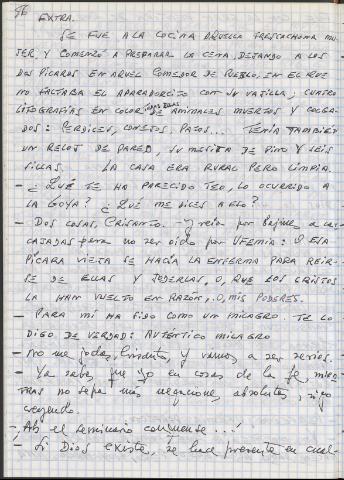 56
EXTRA.
SE FUE A LA COCINA AQUELLA FRESCACHONA MU-
JER, Y COMENZÓ A PREPARAR LA CENA, DEJANDO A LOS
DOS PICAROS EN AQUEL COMEDOR DE PUEBLO, EN EL QUE
NO FALTABA EL APARADORCITO CON SU VAJILLA, CUATRO
LITOGRAFÍAS EN COLOR, TODAS ELLAS DE ANIMALES MUERTOS Y COLGA-
DOS: PERDICES, CONEJOS, PATOS... TENÍA TAMBIÉN
UN RELOJ DE PARED, SU MESITA DE PINO Y SEIS
SILLAS. LA CASA ERA RURAL PERO LIMPIA.
- ¿QUÉ TE HA PARECIDO TEO, LO OCURRIDO A
LA GOYA? ¿QUÉ ME DICES A ELLO?
- DOS COSAS, CRISANTO. - y reía por bajines, a car-
cajadas para no ser oído por UFEMIA: O ESA
PÍCARA VIEJA SE HACÍA LA ENFERMA PARA REIR-
SE DE ELLAS Y JODERLAS, O, QUE LOS CRISTOS
LA HAN VUELTO EN RAZÓN, O, MIS PODERES.
- PARA MÍ HA SIDO COMO UN MILAGRO. TE LO
DIGO DE VERDAD: AUTÉNTICO MILAGRO
- No me jodas, Crisanto, y vamos a ser serios.
- Ya sabes que yo en cosas de la fe, mien-
TRAS no sepa más negaciones absolutas, sigo
creyendo.
- ¡Ahí el seminario
- Si Dios existe, se hace presente en cual-